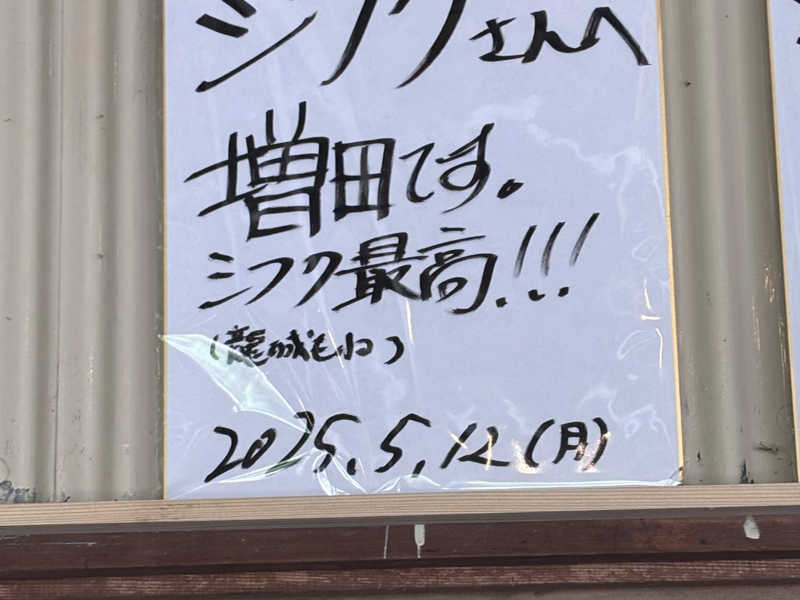 シフクさんへ
増田です。
シフク最高!!!
(龍城もね)
2025.5.12(月)